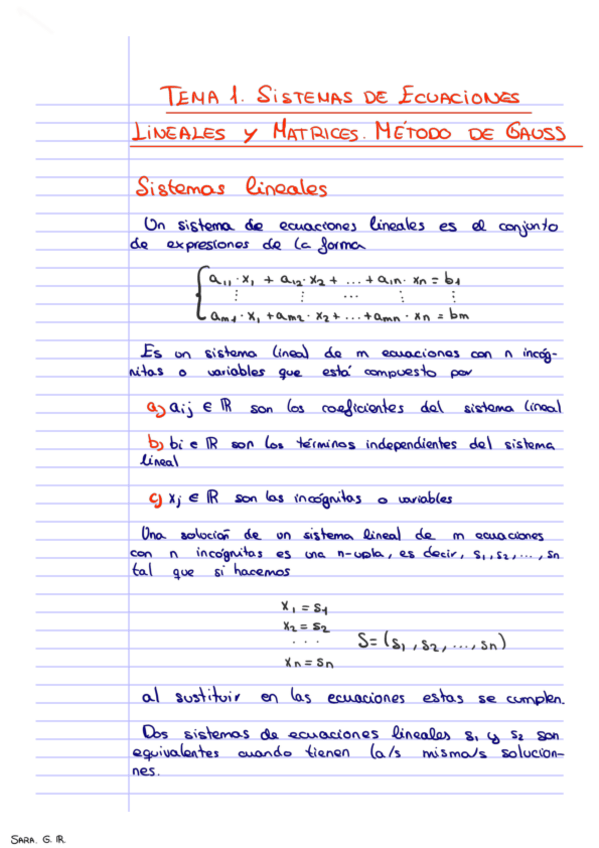 TEMA 1. SISTEMAS DE ECUACIONES
LINEALES Y MATRICES. MÉTODO DE GAUSS
Sistemas lineales
Un sistema de ecuaciones lineales es el conjunto
de expresiones de la forma
a₁₁·x₁ + a₁₂·x₂ + ... + a₁n·xn = b₁
⋮ ⋮ ... ⋮ ⋮
am₁·x₁ + am₂·x₂ + ... + amn·xn = bm
Es un sistema lineal de m ecuaciones con n incóg-
nitas o variables que está compuesto por
a) aij ∈ ℝ son los coeficientes del sistema lineal
b) bi ∈ ℝ son los términos independientes del sistema
lineal
c) xj ∈ ℝ son las incógnitas o variables
Una solución de un sistema lineal de m ecuaciones
con n incógnitas es una n-upla, es decir, s₁, s₂, ..., sn
tal que si hacemos
x₁ = s₁
x₂ = s₂
... S = (s₁, s₂, ..., sn)
xn = sn
al sustituir en las ecuaciones estas se cumplen.
Dos sistemas de ecuaciones lineales s₁ y s₂ son
equivalentes cuando tienen la/s misma/s solucion-
nes.
SARA. G. R.